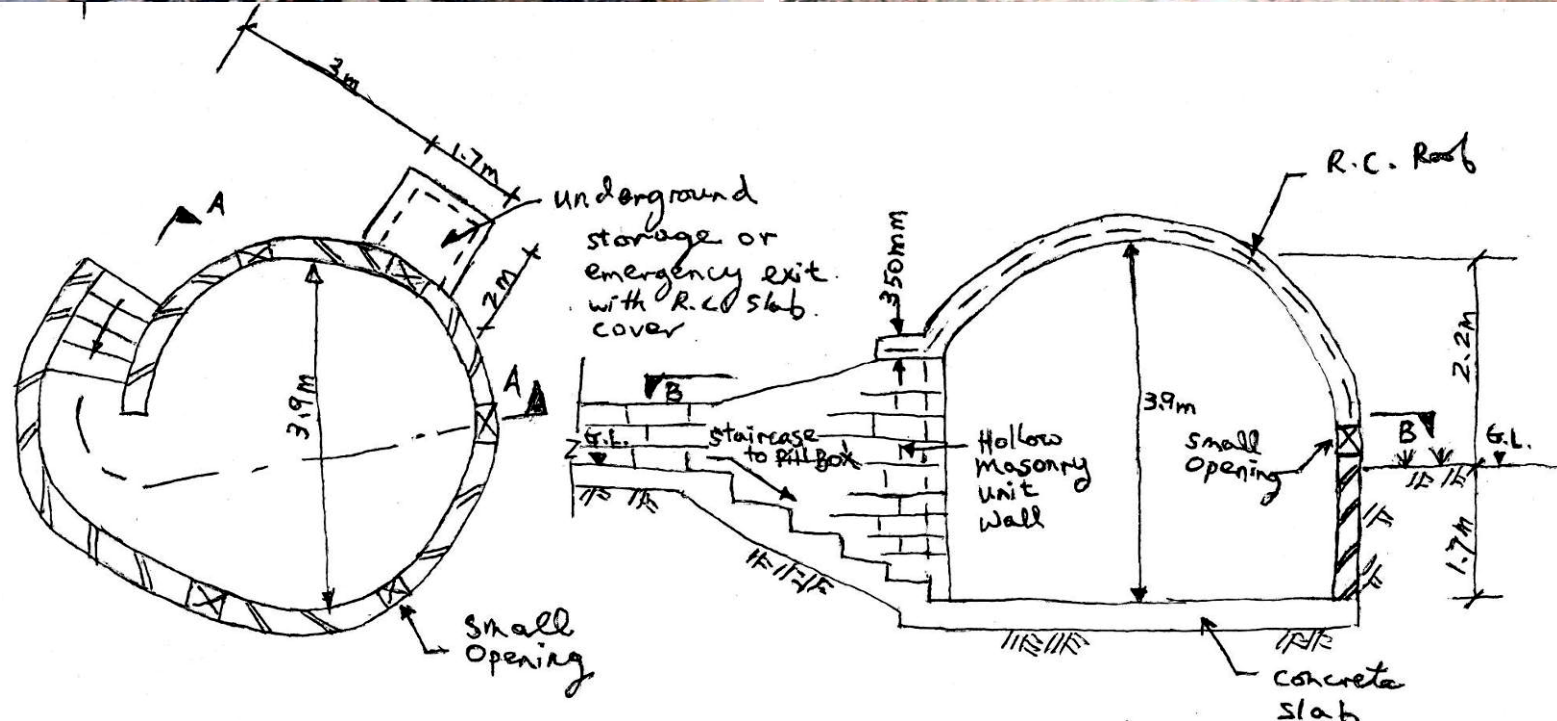 3m
1.7m
A
underground
storage or
emergency exit
with R.C. Slab
cover
2m
A
3.9m
small
opening
R.C. Roof
350mm
2.2m
B
G.L.
staircase
to Pill Box
Hollow
masonry
unit
wall
3.9m
small
opening
B
G.L.
1.7m
concrete
slab